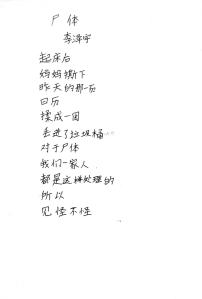 尸体
李泽宇
起床后
妈妈撕下
昨天的那一页
日历
揉成一团
丢进了垃圾桶
对于尸体
我们一家人
都是这样处理的
所以
见怪不怪